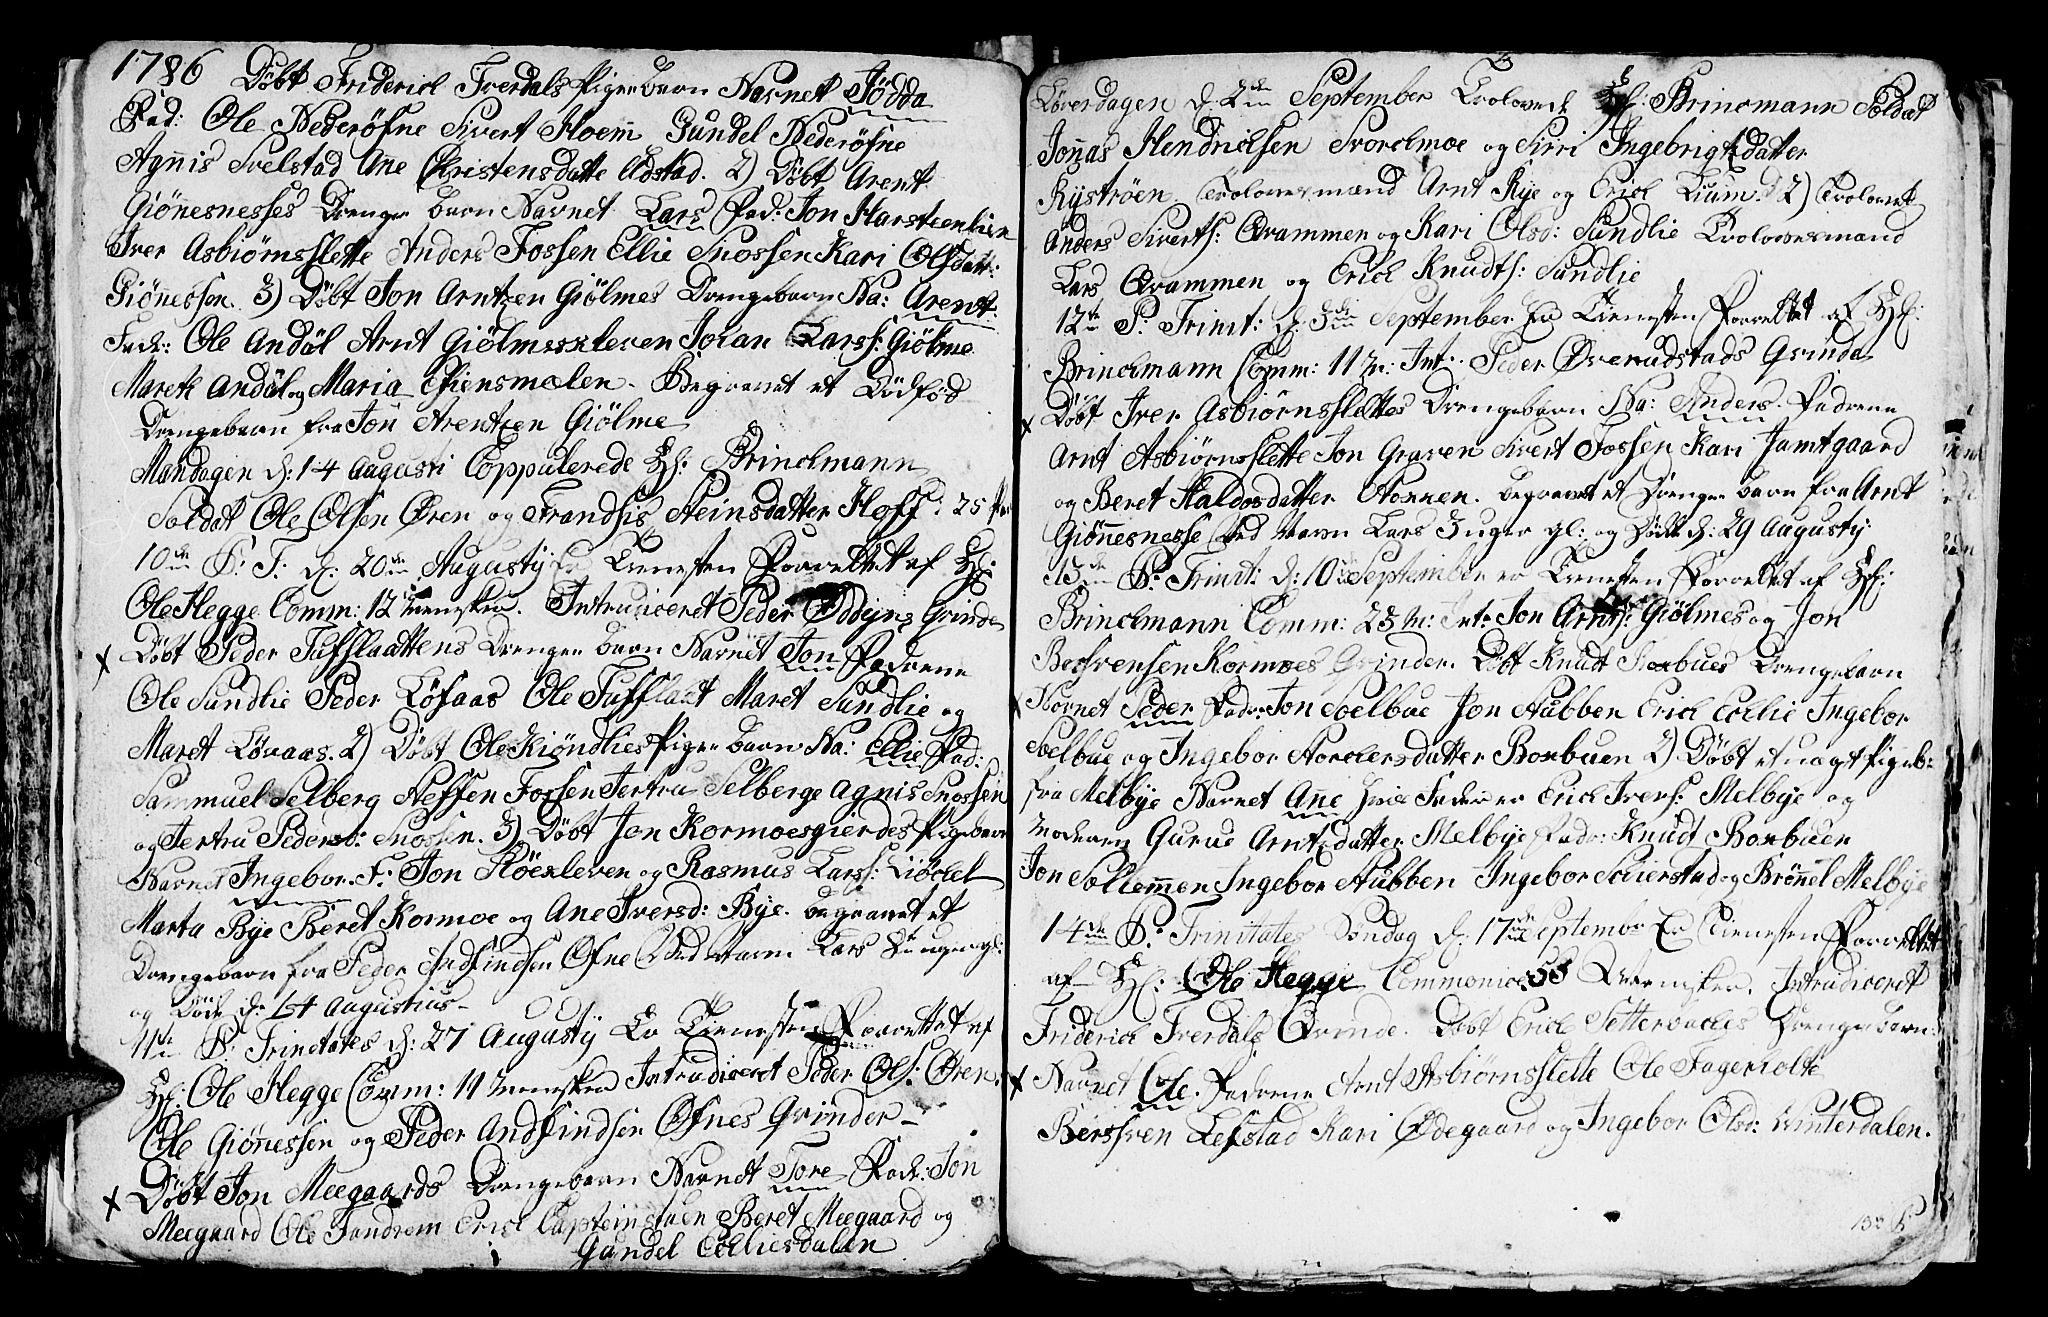 1786 Döbt Friderich Fverdals Pigebarn Navnet Jödda
Fad: Ole Nederöfne Sivert Hoem Gundel Nederöfne
Agnis Svelstad Ane Christensdatte Udstad. 2) Döbt Arent
Giönesnesses Drenge barn Navnet Lars Fad: Jon Harsteenlien
Iver Asbiörnsslette Anders Fossen Ellie Snossen Kari Olsdatt:
Giönessen. 3) Döbt Jon Arntzen Giölmes Drengebarn Na: Arent
Fadr: Ole Andöl Arnt Giölmesxleven Joran Larss: Giölme
Maret Andöl og Maria Ekiensmælen. Begravet et Dödfød
Drengebarn fra Jon Arentzen Giölme
Mandagen d: 14 Augusti Coppulerede Hl: Brinchmann
Soldat Ole Olsen Øren og Frandsis Steinsdatter Hoff
10de P. T: d: 20de Augusty Er Tienesten Forrettet af Hl:
Ole Hegge Comm: 12 Mennesker. Introduceret Peder Oddyns Qvinde
x Döbt Peder Tufslaattens Drenge barn Navnet Jon Fadrene
Ole Sundlie Peder Löfaas Ole Tufflaat Maret Sundlie og
Maret Lövaas. 2) Döbt Ole Kiöndlies Pige barn Na: Ellie Fad:
Sammuel Selberg Steffen Fossen Jertru Selberge Agnis Snossen
og Jertru Pedersd: Snossen. 3) Döbt Jon Kormoesgierdes Pigebarn
Navnet Ingebor. F: Jon Röexleven og Rasmus Larss:
Marta Bye Beret Kormoe og Ane Iversd: Bye. Begravet et
Drengebarn fra Peder Andfindsen Øfne Ved Navn Lars 3 uger gl:
og Döde d: 14 Augustius
11te P. Trinitates d: 27 Augusty Er Tienesten Forrettet af
Hl: Ole Hegge Comm: 11 Mennesker Introduceret Peder Ols: Øren
Ole Giönessen og Peder Andfindsen Øfnes Qvinder
x Döbt Jon Meegaards Drengebarn Navnet Tore Fadr: Jon
Meegaard Ole Tandrem Erich Capteinstuen Beret Meegaard og
Gundel Ecliesdalen
Löverdagen d. 2den September Trolovede Hl: Brincmann Soldat
Jonas Hendrichsen Storchmoe og Sirri Ingebrigtdatter
Ryströen Trolovesmand Arnt Rye og Erich 2) Trolovet
Anders Siverts: Qvammen og Kari Olsd: Sundlie Trolovesmand
Lars Qvammen og Erich Knudts: Sundlie
12te P. Trinit: d. 3die September Er Tienesten Forrettet af Hl:
Brinchmann Comm: 11 M: Int: Peder Øverudstads Qvinde
x Döbt Iver Asbiörnsslettes Drengebarn Na: Anders. Fadrene
Arnt Asbiörnsslette Jon Graven Sivert Fossen Kari Jamtgaard
og Beret Haldosdatter Begravet et Drenge barn fra Arnt
Giönnesnesse Ved Navn Lars 3 uger gl: og Döde d: 29 Augusty:
13de P. Trinit: d: 10de September er Tienesten Forrettet af Hl:
Brinchmann Comm: 23 M: Int: Jon Arnts: Giölmes og Jon
Berssvensen Kormoes Qvinder. Döbt Knudt Boxbues Drengebarn
x Navnet Peder Fadr: Jon Solbue Jon Stubben Erich Ecllie Ingebor
Solbue og Ingebor Storckersdatter Boxbuen 2) Döbt et uægt Pigeb:
fra Melbye Navnet Ane hvis Fader er Erich Ivers: Melbye og
Moderen Gurue Arntzdatter Melbye Fadr: Knudt Boxbuen
Jon Sollemmen Ingebor Stubben Ingebor Scierstad og Brönnel Melbye
14de P. Trinitates Söndag d. 17de September Er Tienesten Forrettet
af Hl: Ole Hegge Commonic: 53 Mennisker. Introduceret
Friderich Fverdals Qvinde. Döbt Erich Settersvacles Drengebarn
x Navnet Ole. Fadrene Arnt Asbiörnsslette Ole Fagerholte
Berssven Lefstad Kari Ødegaard og Ingebor Olsd: Vinterdalen.